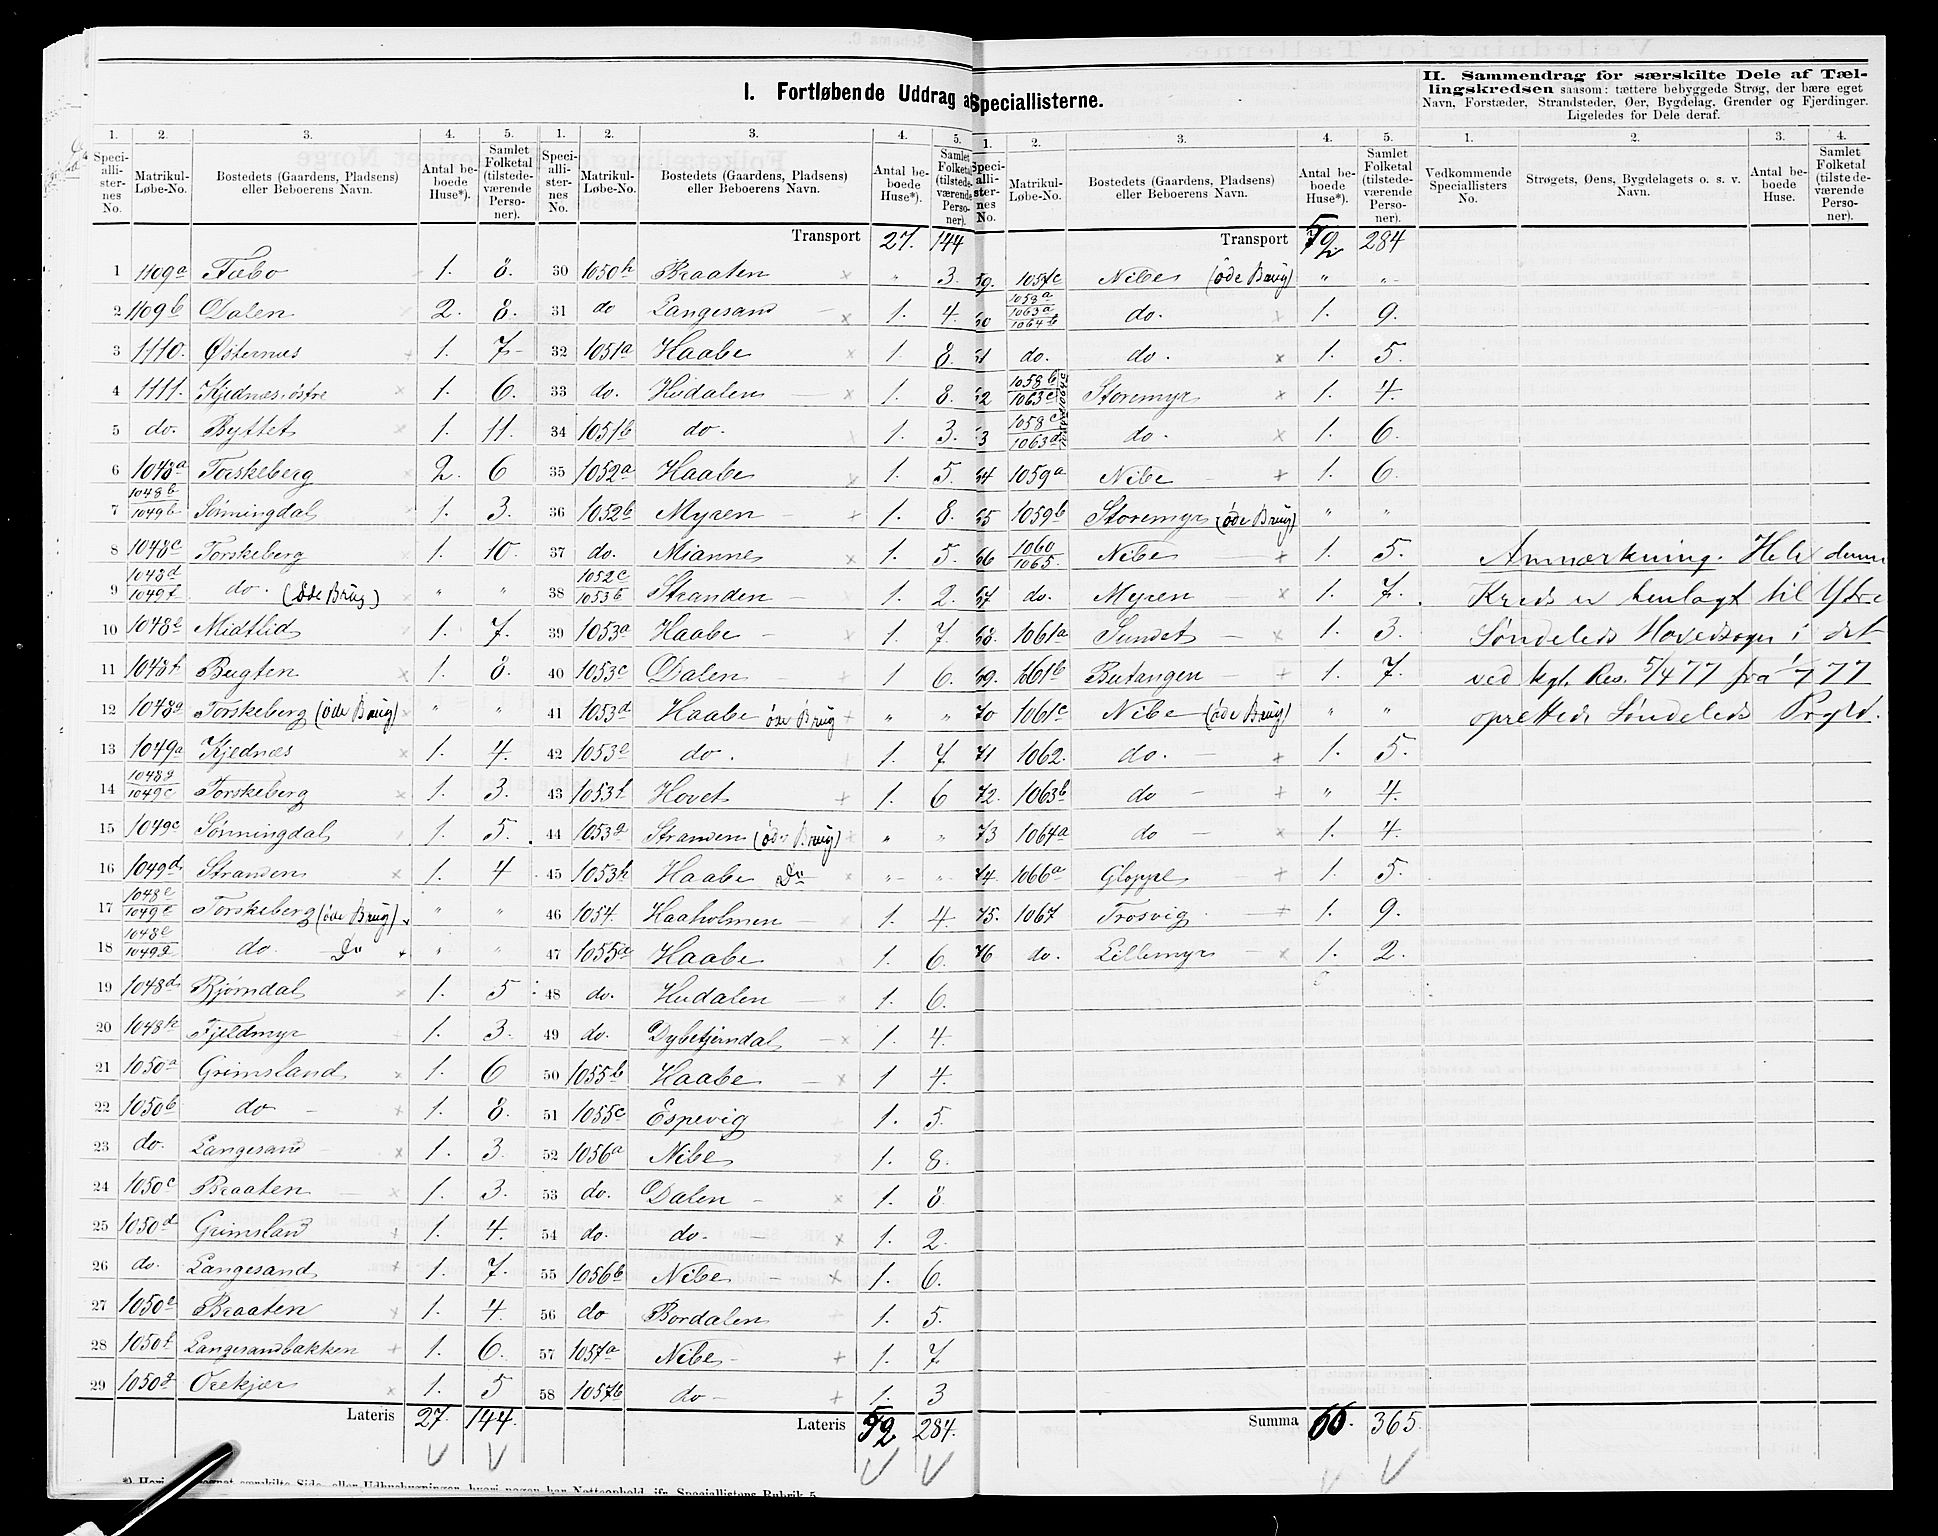 I. Fortløbende Uddrag a Speciallisterne.
II. Sammendrag for særskilte Dele af Tæl-
lingskredsen saasom: tættere bebyggede Strøg, der bære eget
Navn, Forstæder, Strandsteder, Øer, Bygdelag, Grender og Fjerdinger.
Ligeledes for Dele deraf.
1. 2. 3. 4. 5.
Speci-alli-ster-nes No. Matrikul-Løbe-No. Bostedets (Gaardens, Pladsens) eller Beboerens Navn. Antal be-boede Huse*). Samlet Folketal (tilstede-værende Perso-ner).
1 1109a Fæbo 1. 8.
2 1109b Dalen 2. 8.
3 1110. Østernæs 1. 7
4 1111. Kjednæs østre 1. 6.
5 do. Byttet 1. 11.
6 1048a Torskeberg 2. 6
7 1048b 1049b Sønningdal 1. 3.
8 1048c Torskeberg 1. 10.
9 1048d 1049f do. (öde Brug) " "
10 1048e Midtlid 1. 7.
11 1048f Bugten 1. 8.
12 1048g Torskeberg (öde Brug) " "
13 1049a Kjednæs 1. 4.
14 1048g 1049c Torskeberg 1. 3.
15 1049c Sønningdal 1. 5.
16 1049d Stranden 1. 4
17 1048e 1049e Torskeberg (öde Brug) " "
18 1048e 1049g do. Do " "
19 1048d Bjørndal 1. 5
20 1048h Fjeldmyr 1. 3.
21 1050a Grimsland 1. 6
22 1050b do 1. 8.
23 do. Langesand 1. 3.
24 1050c Braaten 1. 3.
25 1050d Grimsland 1. 4.
26 do. Langesand 1. 7.
27 1050e Braaten 1. 4.
28 1050f Langesandbakken 1. 6.
29 1050g Orekjær 1. 5
Lateris 27. 144.
1. 2. 3. 4. 5.
Speci-alli-ster-nes No. Matrikul-Løbe-No. Bostedets (Gaardens, Pladsens) eller Beboerens Navn. Antal be-boede Huse*). Samlet Folketal (tilstede-værende Perso-ner).
Transport 27. 144
30 1050h Braaten " 3.
31 do Langesand 1. 4.
32 1051a Haabe 1. 8.
33 do. Hødalen 1. 8.
34 1051b do. 1. 3.
35 1052a Haabe 1. 5.
36 1052b Myren 1. 8.
37 do. Mianne 1. 5.
38 1052c 1053b Stranden 1. 2.
39 1053a Haabe 1. 7.
40 1053c Dalen 1 6.
41 1053d Haabe öde Brug " "
42 1053e do. 1. 7
43 1053f Hovet 1. 6
44 1053g Stranden (öde Brug) " "
45 1053h Haabe Do " "
46 1054. Haaholmen 1. 4
47 1055a Haabe 1. 6.
48 do. Hudalen 1. 6.
49 do. Dybetjerndal 1. 4.
50 1055b Haabe 1 4.
51 1055c Espevig 1. 5.
52 1056a Nibe 1. 8.
53 do. Dalen 1. 8.
54 do. do. 1. 2.
55 1056b Nibe 1. 6.
56 do Bordalen 1. 5.
57 1057a Nibe 1. 7
58 1057b do 1. 3
Lateris 52 284.
1. 2. 3. 4. 5.
Speci-alli-ster-nes No. Matrikul-Løbe-No. Bostedets (Gaardens, Pladsens) eller Beboerens Navn. Antal be-boede Huse*). Samlet Folketal (tilstede-værende Perso-ner).
Transport 52 284
59. 1057c Nibe (öde Brug) " "
60 1058a 1063a 1064b do. 1. 9.
61 do. do. 1. 5.
62 1058b 1063c Storemyr 1. 4.
63 1058c 1063d do. 1. 6.
64 1059a Nibe 1. 6.
65 1059b Storemyr (öde Brug) " "
66 1060 1065. Nibe 1. 5.
67 do. Myren 1. 7.
68. 1061a Sundet 1. 3.
69. 1061b Butangen 1. 7.
70 1061c Nibe (öde Brug) " "
71 1062. do. 1. 5.
72. 1063b do " 4.
73 1064a do 1. 4.
74. 1066a Gloppe 1. 5.
75. 1067 Trosvig 1. 9.
76 do. Lillemyr 1. 2.
Summa 66. 365.
1. 2. 3. 4.
Vedkommende Speciallisters No. Strøgets, Øens, Bygdelagets o. s. v. Navn. Antal be-boede Huse. Samlet Folketal (tilstede-værende Perso-ner).
Anmærkning. Hele denne
Kreds er henlagt til Ytre
Søndeleds Hovedsogn i det
ved kgl. Res. 5/4 77 fra 1/7 77
oprettede Søndeleds Prgld.